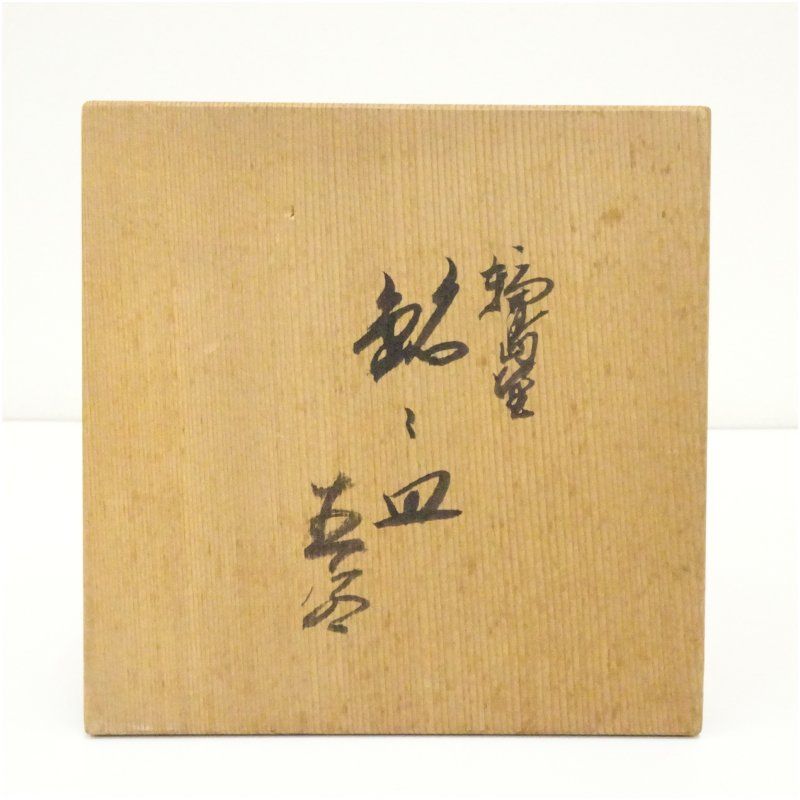 輪島塗
銘々皿
五客